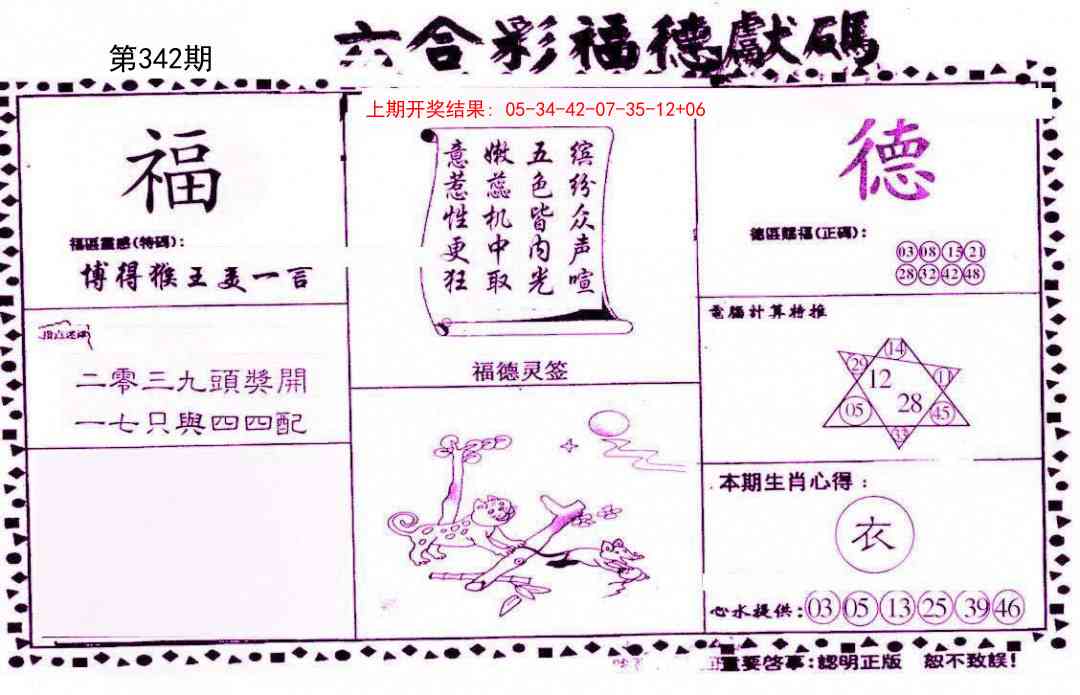 第342期
六合彩福德獻碼
上期开奖结果：05-34-42-07-35-12+06
福
福區靈感(特碼)：
博得猴王美一言
二零三九頭獎開
一七只與四四配
缤纷众声喧
五色皆内光
嫩蕊机中取
意惹性更狂
福德灵签
德
德區賜福(正碼)：
03 08 15 21
28 32 42 48
電腦計算特推
14
29
12
11
28
05
45
33
本期生肖心得：
衣
心水提供：03 05 13 25 39 46
重要啓事：認明正版 恕不致誤！